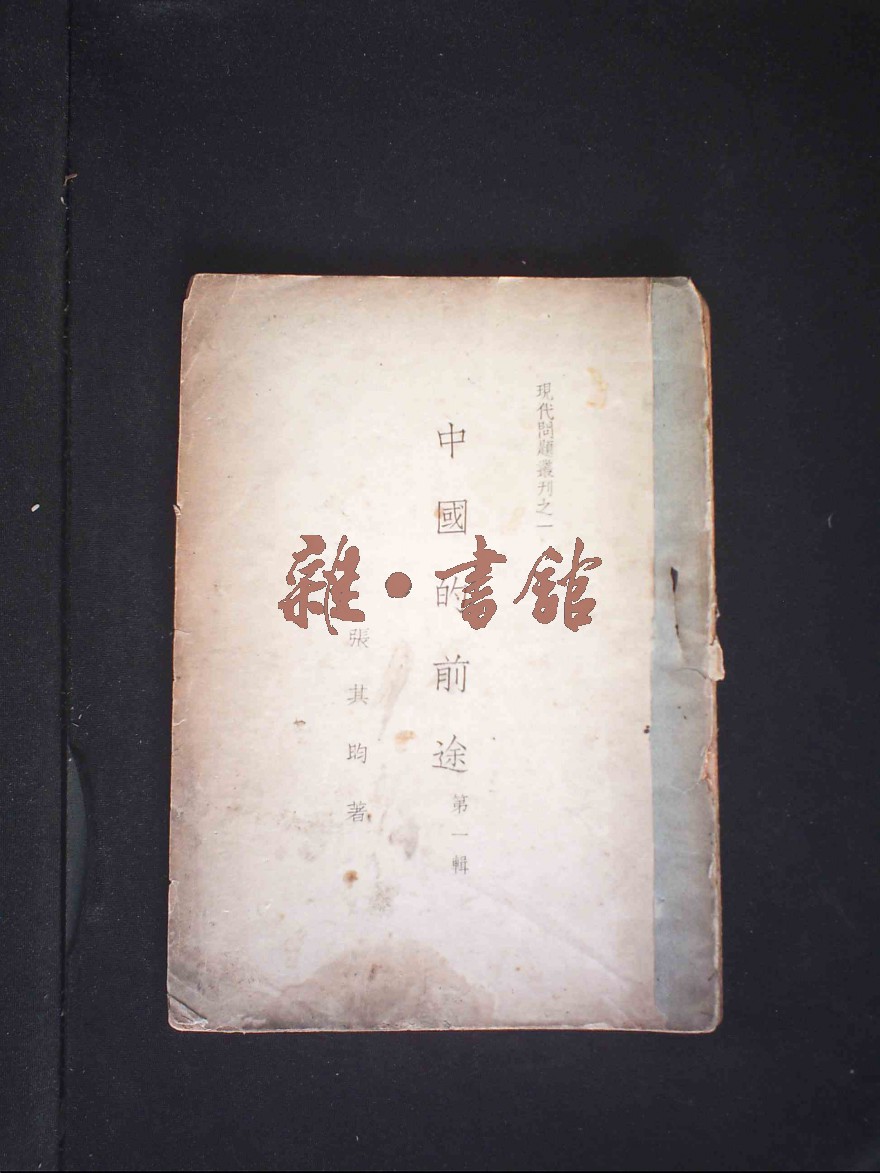 現代問題叢刊之一
中國的前途
第一輯
張其昀著
雜·書館